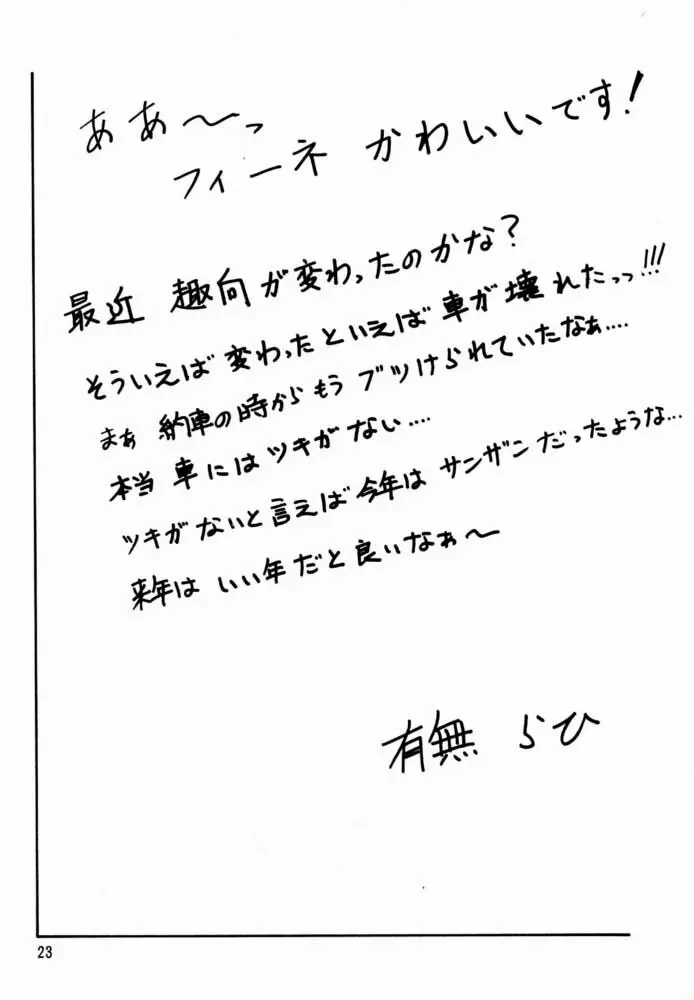 ああ〜っ
フィーネ かわいいです!
最近 趣向が変わったのかな?
そういえば 変わったといえば 車が 壊れたっっ!!!
まぁ 納車の時から もう ブツけられていたなぁ....
本当 車には ツキがない....
ツキがないと言えば 今年は サンザンだったような...
来年は いい年だと良いなぁ〜
有無 らひ
23